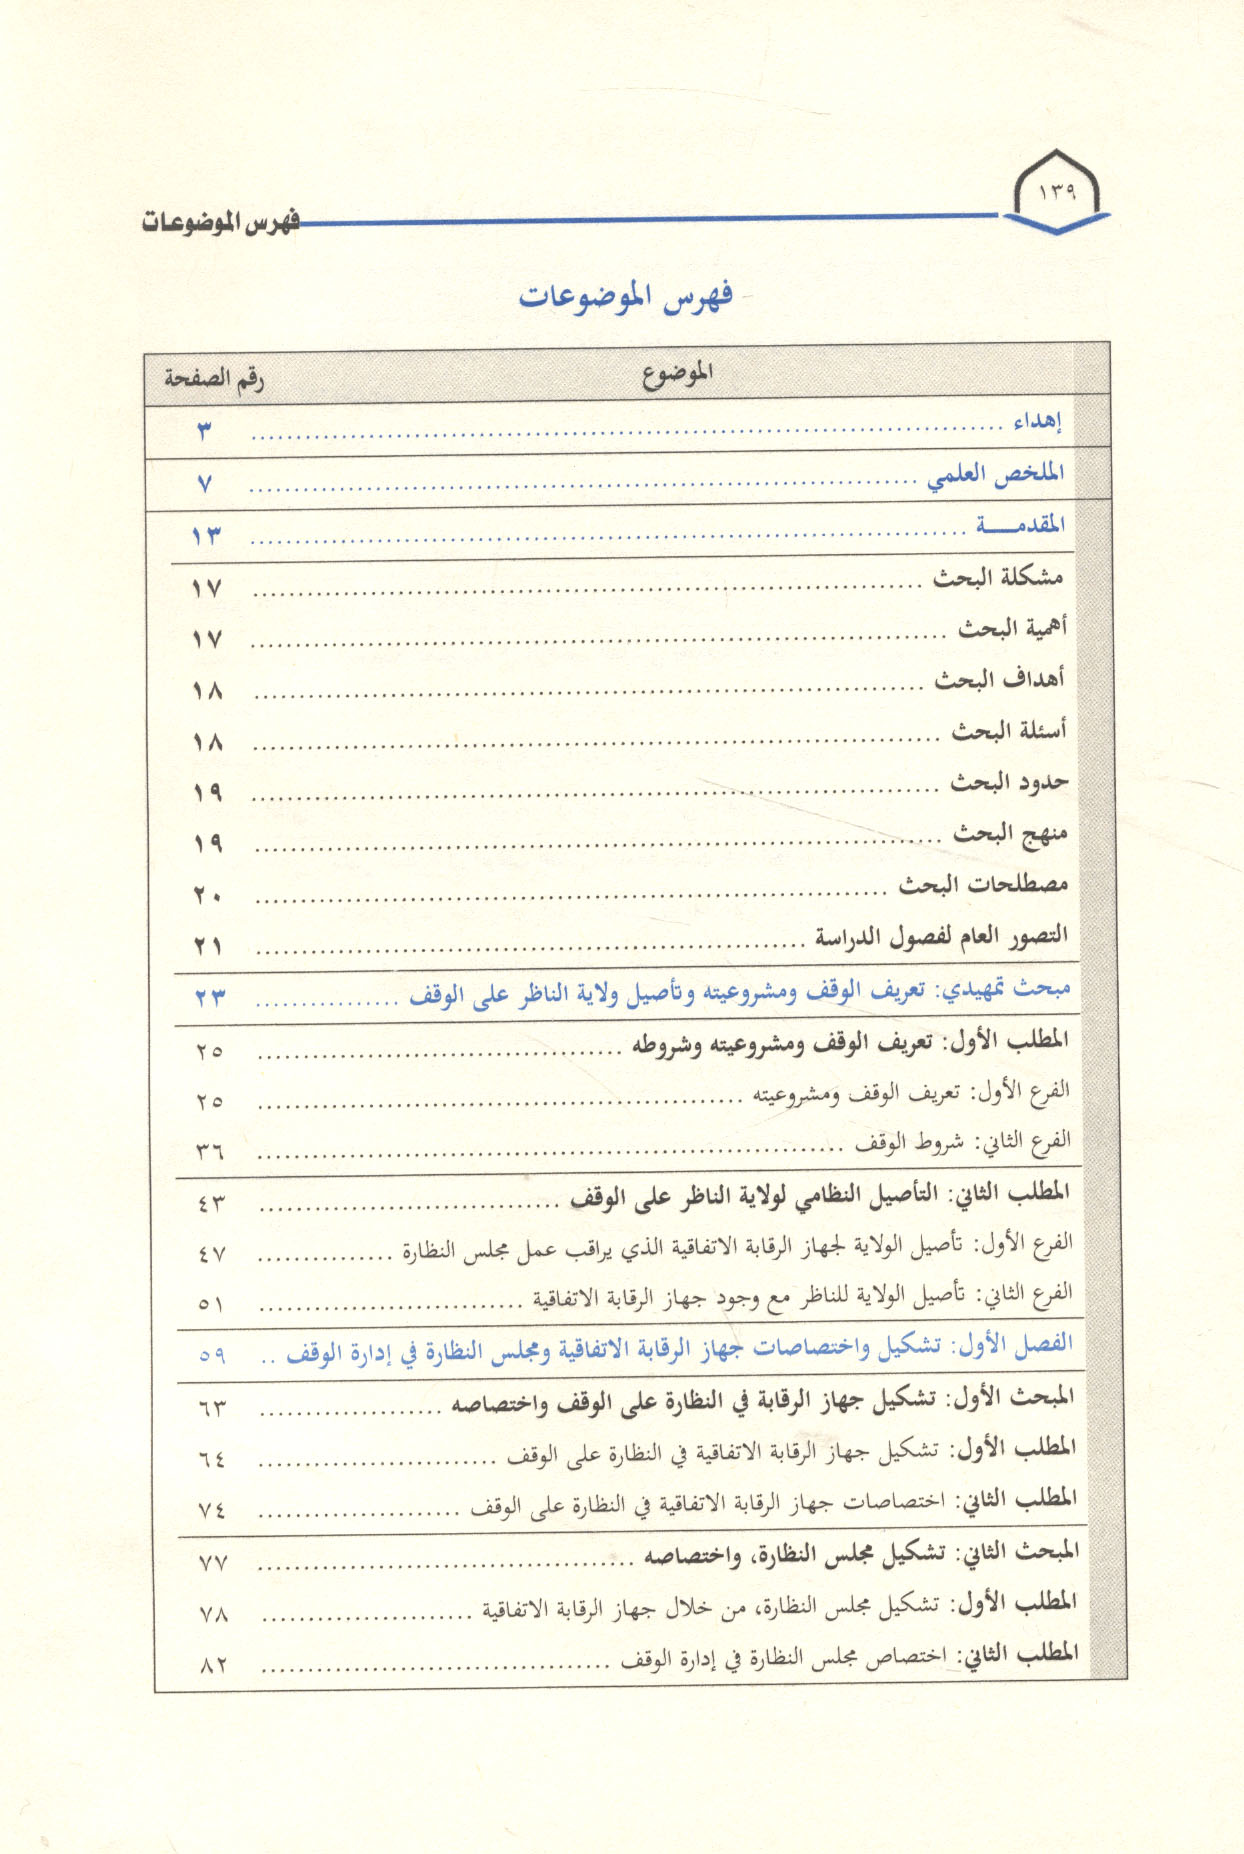 ١٣٩
فهرس الموضوعات
فهرس الموضوعات
الموضوع رقم الصفحة
إهداء ٣
الملخص العلمي ٧
المقدمـــة ١٣
مشكلة البحث ١٧
أهمية البحث ١٧
أهداف البحث ١٨
أسئلة البحث ١٨
حدود البحث ١٩
منهج البحث ١٩
مصطلحات البحث ٢٠
التصور العام لفصول الدراسة ٢١
مبحث تمهيدي: تعريف الوقف ومشروعيته وتأصيل ولاية الناظر على الوقف ٢٣
المطلب الأول: تعريف الوقف ومشروعيته وشروطه ٢٥
الفرع الأول: تعريف الوقف ومشروعيته ٢٥
الفرع الثاني: شروط الوقف ٣٦
المطلب الثاني: التأصيل النظامي لولاية الناظر على الوقف ٤٣
الفرع الأول: تأصيل الولاية لجهاز الرقابة الاتفاقية الذي يراقب عمل مجلس النظارة ٤٧
الفرع الثاني: تأصيل الولاية للناظر مع وجود جهاز الرقابة الاتفاقية ٥١
الفصل الأول: تشكيل واختصاصات جهاز الرقابة الاتفاقية ومجلس النظارة في إدارة الوقف ٥٩
المبحث الأول: تشكيل جهاز الرقابة في النظارة على الوقف واختصاصه ٦٣
المطلب الأول: تشكيل جهاز الرقابة الاتفاقية في النظارة على الوقف ٦٤
المطلب الثاني: اختصاصات جهاز الرقابة الاتفاقية في النظارة على الوقف ٧٤
المبحث الثاني: تشكيل مجلس النظارة، واختصاصه ٧٧
المطلب الأول: تشكيل مجلس النظارة، من خلال جهاز الرقابة الاتفاقية ٧٨
المطلب الثاني: اختصاص مجلس النظارة في إدارة الوقف ٨٢